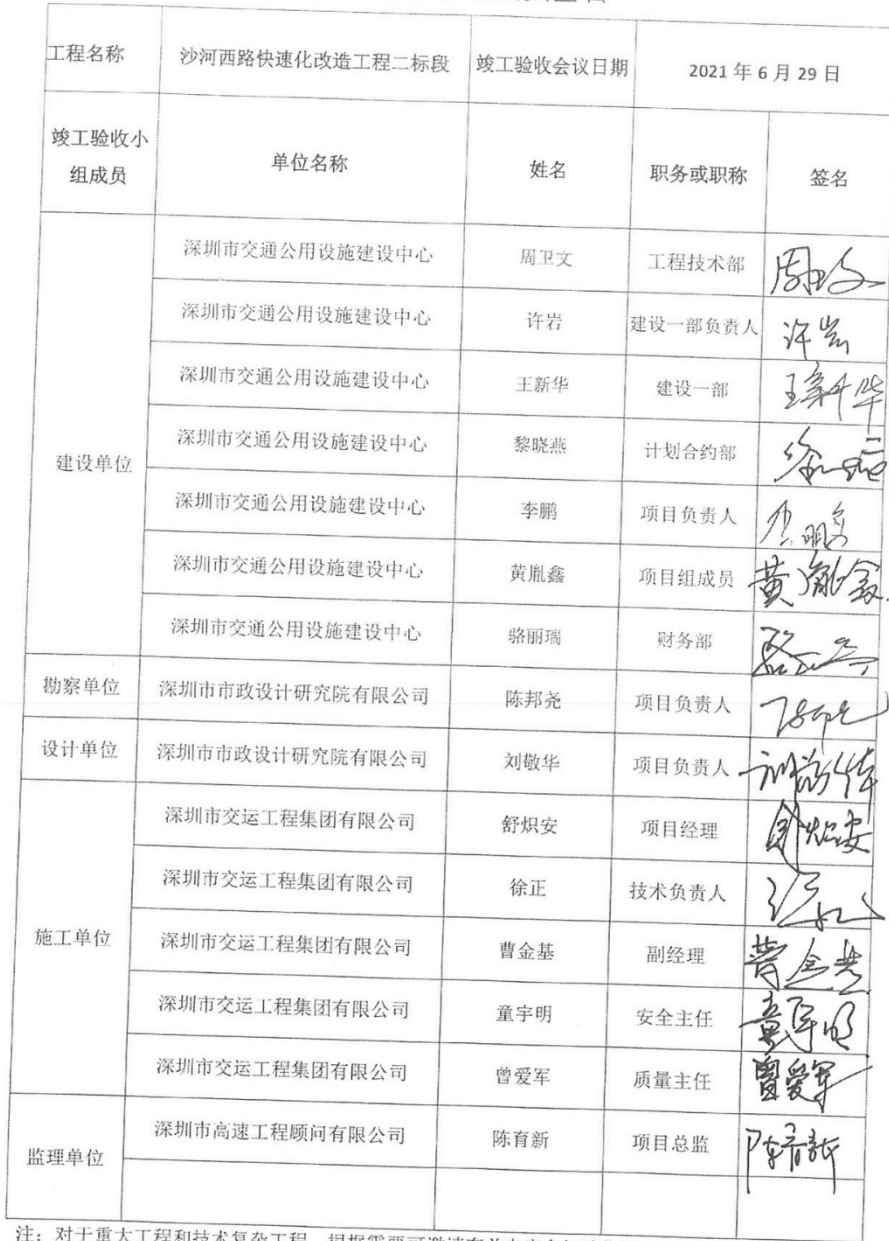 工程名称 沙河西路快速化改造工程二标段 竣工验收会议日期 2021 年 6 月 29 日
竣工验收小组成员 单位名称 姓名 职务或职称 签名
建设单位
深圳市交通公用设施建设中心 周卫文 工程技术部
深圳市交通公用设施建设中心 许岩 建设一部负责人 许岩
深圳市交通公用设施建设中心 王新华 建设一部 王新华
深圳市交通公用设施建设中心 黎晓燕 计划合约部
深圳市交通公用设施建设中心 李鹏 项目负责人 李鹏
深圳市交通公用设施建设中心 黄胤鑫 项目组成员 黄胤鑫
深圳市交通公用设施建设中心 骆丽瑞 财务部
勘察单位 深圳市市政设计研究院有限公司 陈邦尧 项目负责人
设计单位 深圳市市政设计研究院有限公司 刘敬华 项目负责人
施工单位
深圳市交运工程集团有限公司 舒炽安 项目经理
深圳市交运工程集团有限公司 徐正 技术负责人
深圳市交运工程集团有限公司 曹金基 副经理
深圳市交运工程集团有限公司 童宇明 安全主任 童宇明
深圳市交运工程集团有限公司 曾爱军 质量主任 曾爱军
监理单位 深圳市高速工程顾问有限公司 陈育新 项目总监 陈育新
注：对于重大工程和技术复杂工程，根据需要可邀请有关